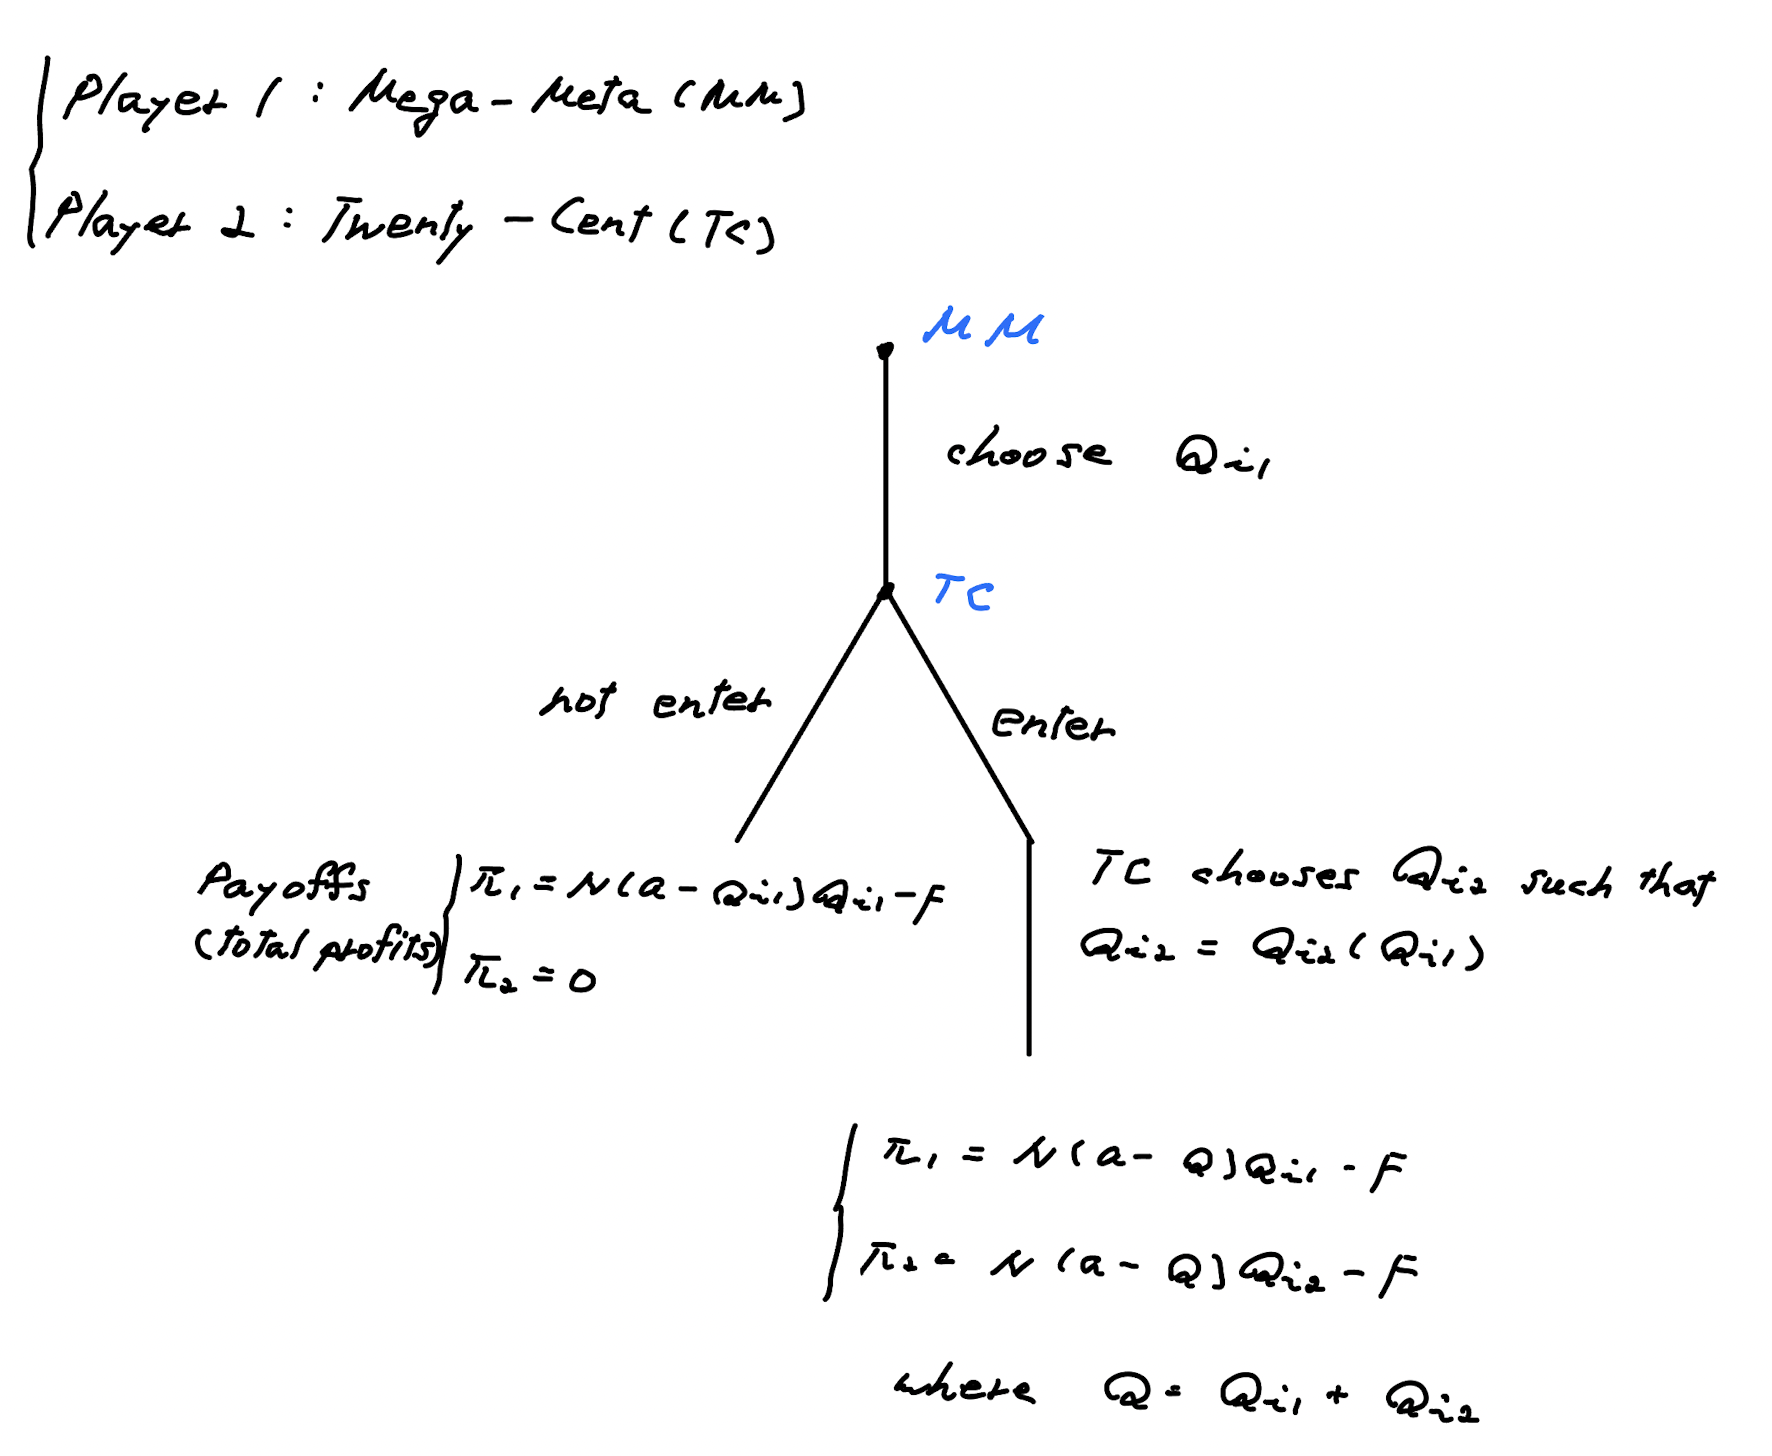 Player 1 : Mega-Meta (MM)
Player 2 : Twenty-Cent (TC)
MM
choose Qi1
TC
not enter
enter
Payoffs
(total profits)
π1 = N(a - Qi1)Qi1 - F
π2 = 0
TC chooses Qi2 such that
Qi2 = Qi2(Qi1)
π1 = N(a - Q)Qi1 - F
π2 = N(a - Q)Qi2 - F
where Q = Qi1 + Qi2